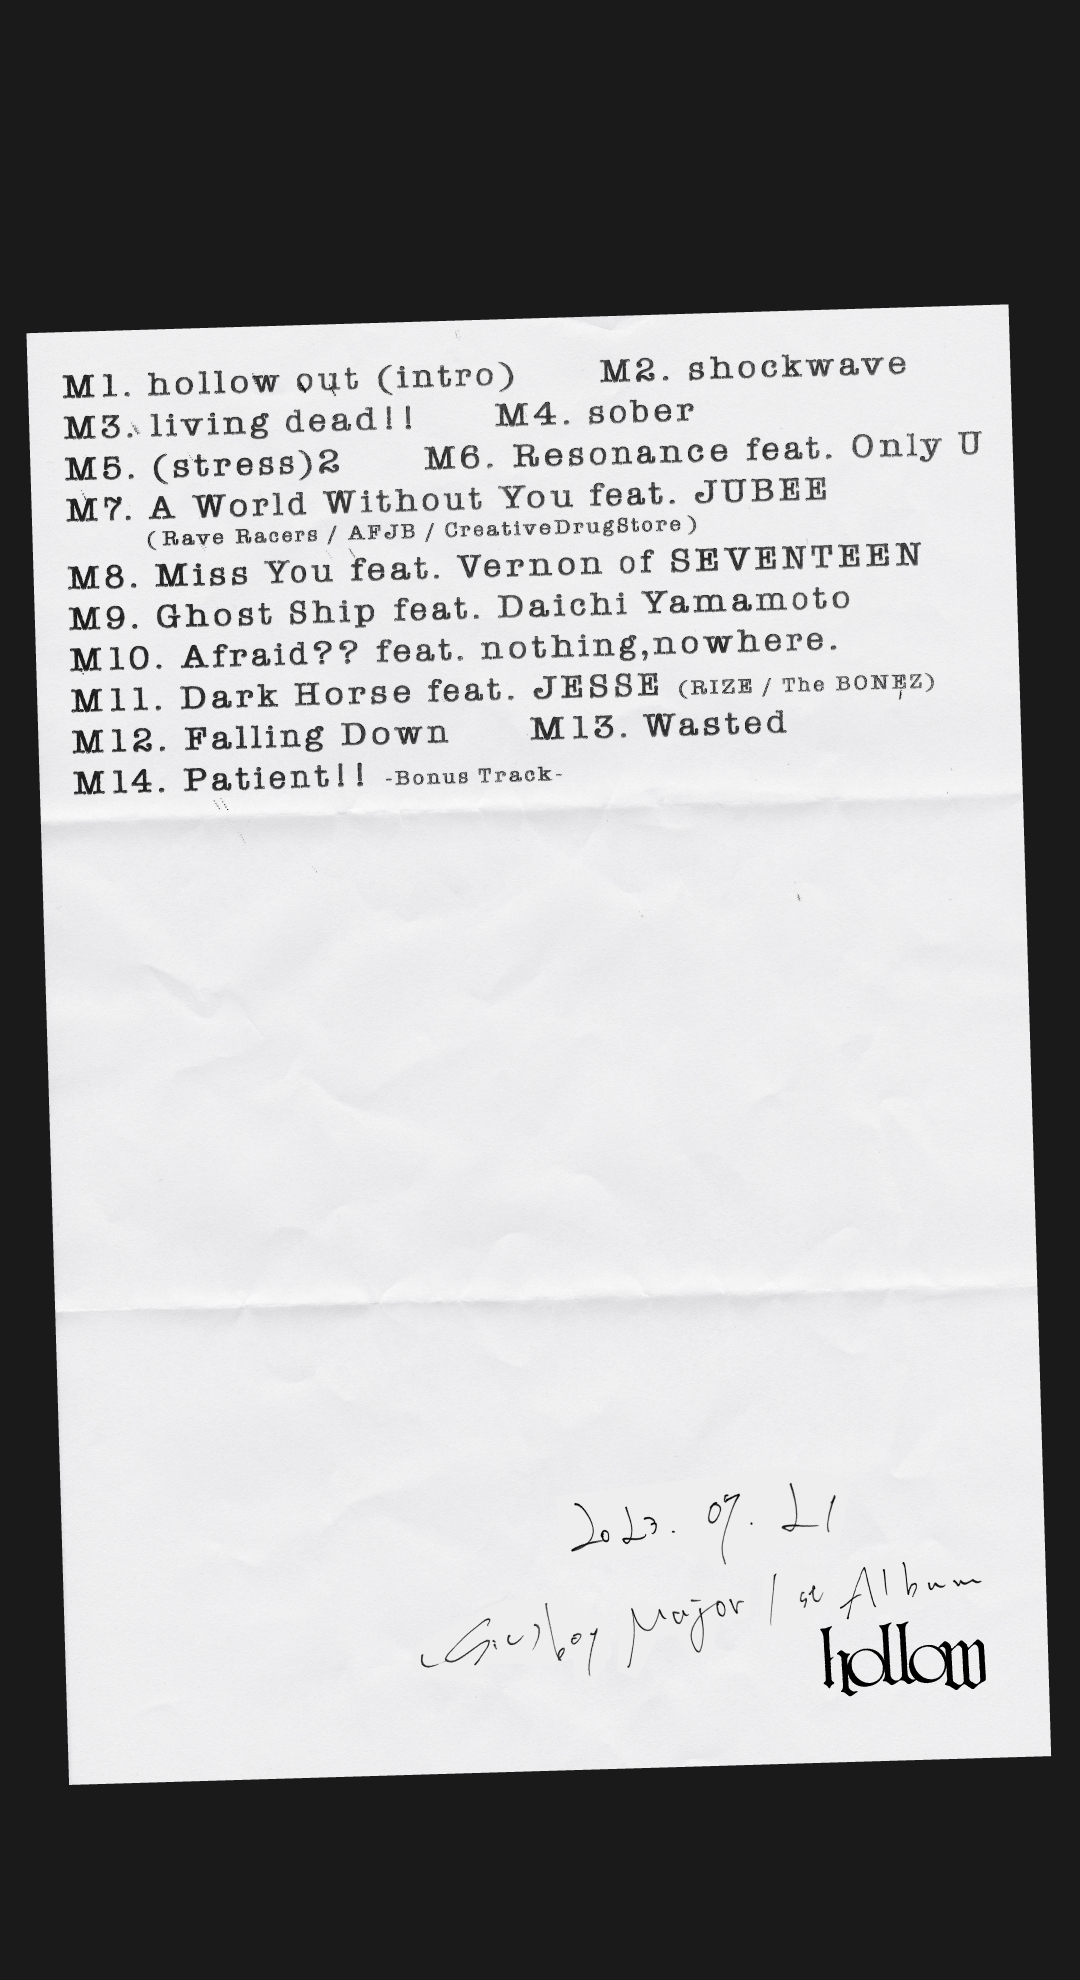 M1. hollow out (intro) M2. shockwave
M3. living dead!! M4. sober
M5. (stress)2 M6. Resonance feat. Only U
M7. A World Without You feat. JUBEE
(Rave Racers / AFJB / CreativeDrugStore)
M8. Miss You feat. Vernon of SEVENTEEN
M9. Ghost Ship feat. Daichi Yamamoto
M10. Afraid?? feat. nothing,nowhere.
M11. Dark Horse feat. JESSE (RIZE / The BONEZ)
M12. Falling Down M13. Wasted
M14. Patient!! -Bonus Track-
2023. 07. 21
Major 1st Album
hollow